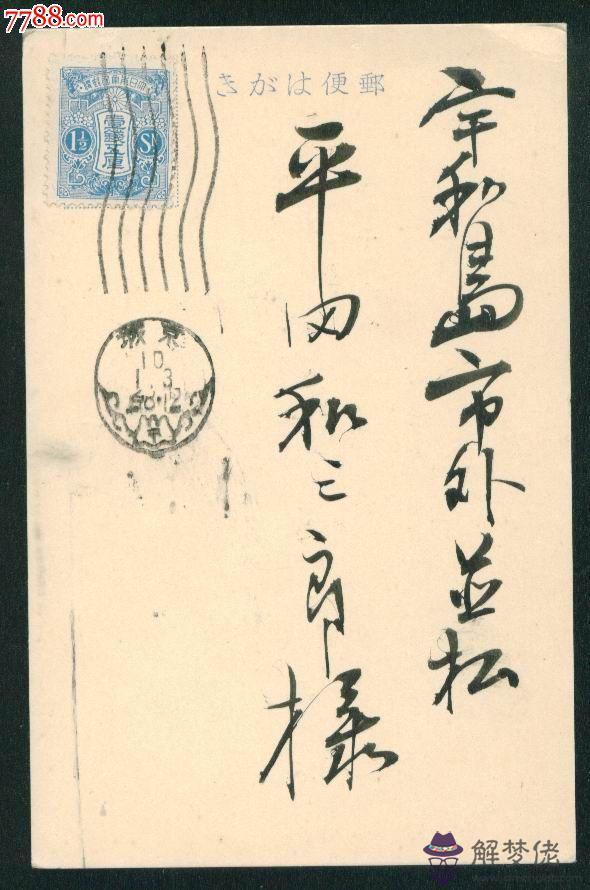 7788.com
郵便はがき
大日本帝国郵便
壹錢五厘
1½ Sn
東京
10
1.3
宇和島市外並松
平田和三郎様
解梦佬